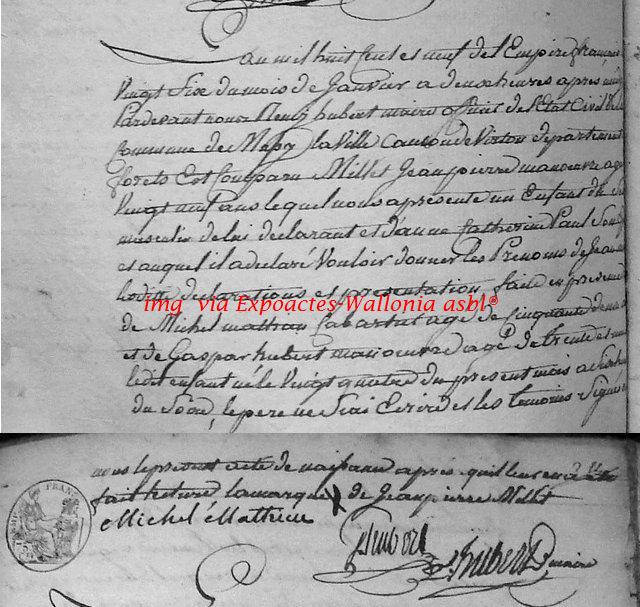 an mil huit cent et neuf de l'Empire français
Vingt Six du mois de Janvier a deux heures apres
Pardevant nous Henry hubert maire officier de l'Etat Civil
Commune de la Ville Canton de Virton département
forets Est Comparu Millet Jeanpierre manoeuvre agé
Vingt neuf ans lequel nous a presenté un Enfant du
masculin de lui déclarant et d'anne Catherine Paul Son
et auquel il a declaré Vouloir donner les Prenoms de Jean
declarations et presentation faite en presence
img via Expoactes-Wallonia asbl®
de Michel mathieu Cabartier agé de Cinquante
et de Gaspar hubert manoeuvre agé de trente et
ledit enfant né le Vingt quatre du present mois a
du Soir, le pere ne Scai Ecrire et les temoins Signe
nous le present acte de naissance après qu'il leur en a été
fait lecture la marque X de Jeanpierre Millet
Michel Mathieu
Hubert
Hubert maire